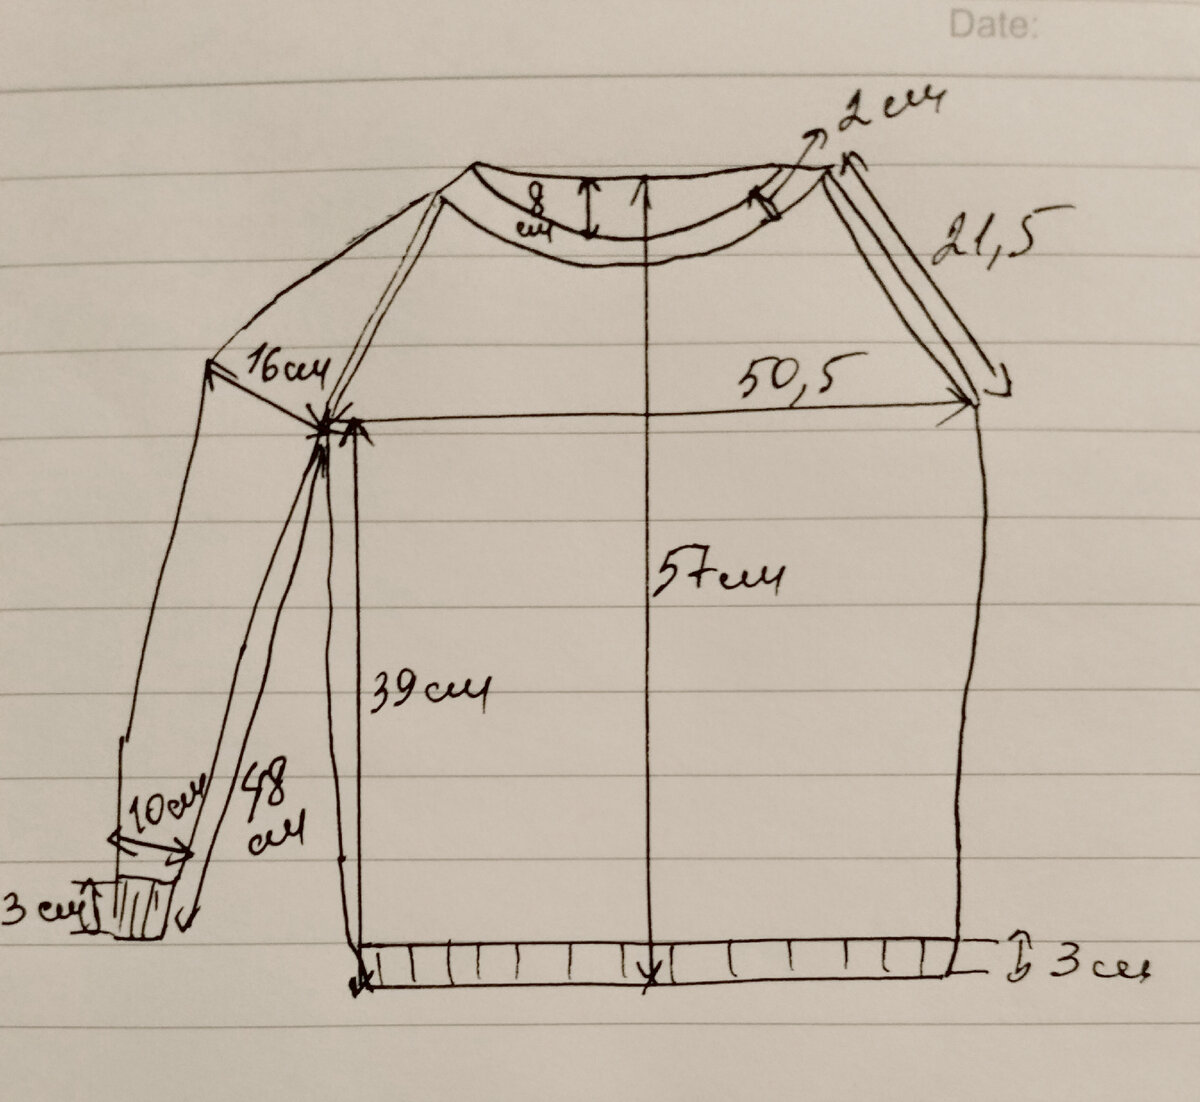 Date:
2 см
8
см
21,5
16см
50,5
57см
39см
10см
48
см
3 см
3 см